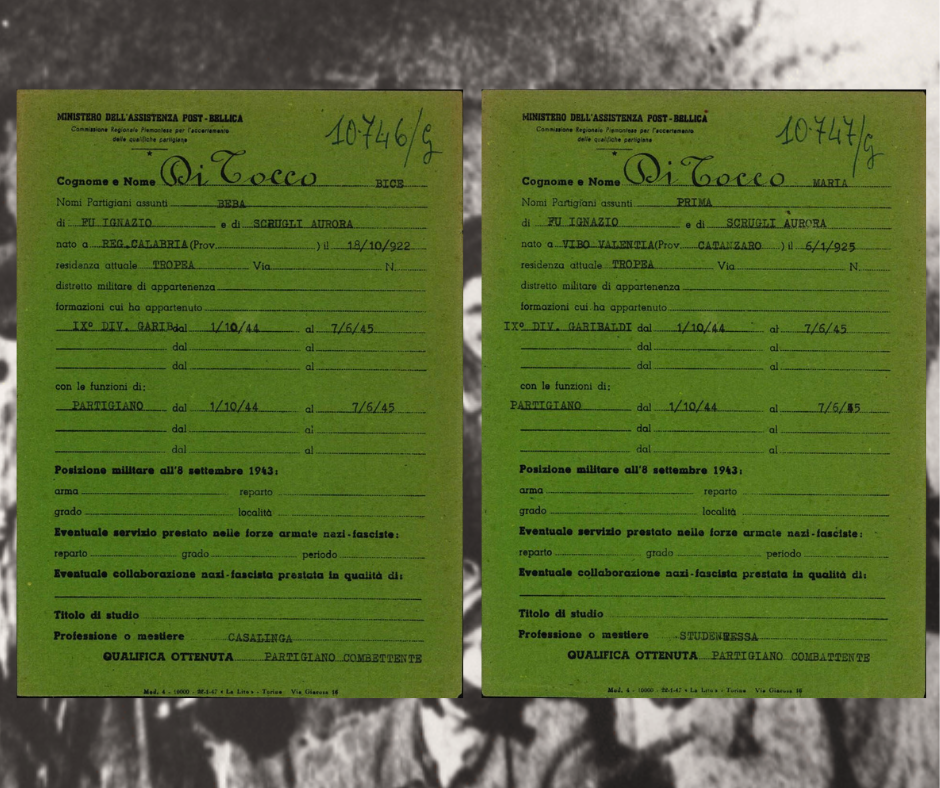 MINISTERO DELL'ASSISTENZA POST-BELLICA
Commissione Regionale Piemontese per l'accertamento
delle qualifiche partigiane
10.746/G
Cognome e Nome Di Tocco BICE
Nomi Partigiani assunti BEBA
di FU IGNAZIO e di SCRUGLI AURORA
nato a REG.CALABRIA (Prov. ) il 18/10/922
residenza attuale TROPEA Via N.
distretto militare di appartenenza
formazioni cui ha appartenuto
IXº DIV. GARIB. dal 1/10/44 al 7/6/45
dal al
dal al
con le funzioni di:
PARTIGIANO dal 1/10/44 al 7/6/45
dal al
dal al
Posizione militare all'8 settembre 1943:
arma reparto
grado località
Eventuale servizio prestato nelle forze armate nazi-fasciste:
reparto grado periodo
Eventuale collaborazione nazi-fascista prestata in qualità di:
Titolo di studio
Professione o mestiere CASALINGA
QUALIFICA OTTENUTA PARTIGIANO COMBETTENTE
Mod. 4 - 15000 - 22-1-47 « La Lito » - Torino Via Giacosa 16
MINISTERO DELL'ASSISTENZA POST-BELLICA
Commissione Regionale Piemontese per l'accertamento
delle qualifiche partigiane
10.747/G
Cognome e Nome Di Tocco MARIA
Nomi Partigiani assunti PRIMA
di FU IGNAZIO e di SCRUGLI AURORA
nato a VIBO VALENTIA (Prov. CATANZARO ) il 6/1/925
residenza attuale TROPEA Via N.
distretto militare di appartenenza
formazioni cui ha appartenuto
IXº DIV. GARIBALDI dal 1/10/44 al 7/6/45
dal al
dal al
con le funzioni di:
PARTIGIANO dal 1/10/44 al 7/6/45
dal al
dal al
Posizione militare all'8 settembre 1943:
arma reparto
grado località
Eventuale servizio prestato nelle forze armate nazi-fasciste:
reparto grado periodo
Eventuale collaborazione nazi-fascista prestata in qualità di:
Titolo di studio
Professione o mestiere STUDENTESSA
QUALIFICA OTTENUTA PARTIGIANO COMBATTENTE
Mod. 4 - 15000 - 22-1-47 « La Lito » - Torino Via Giacosa 16